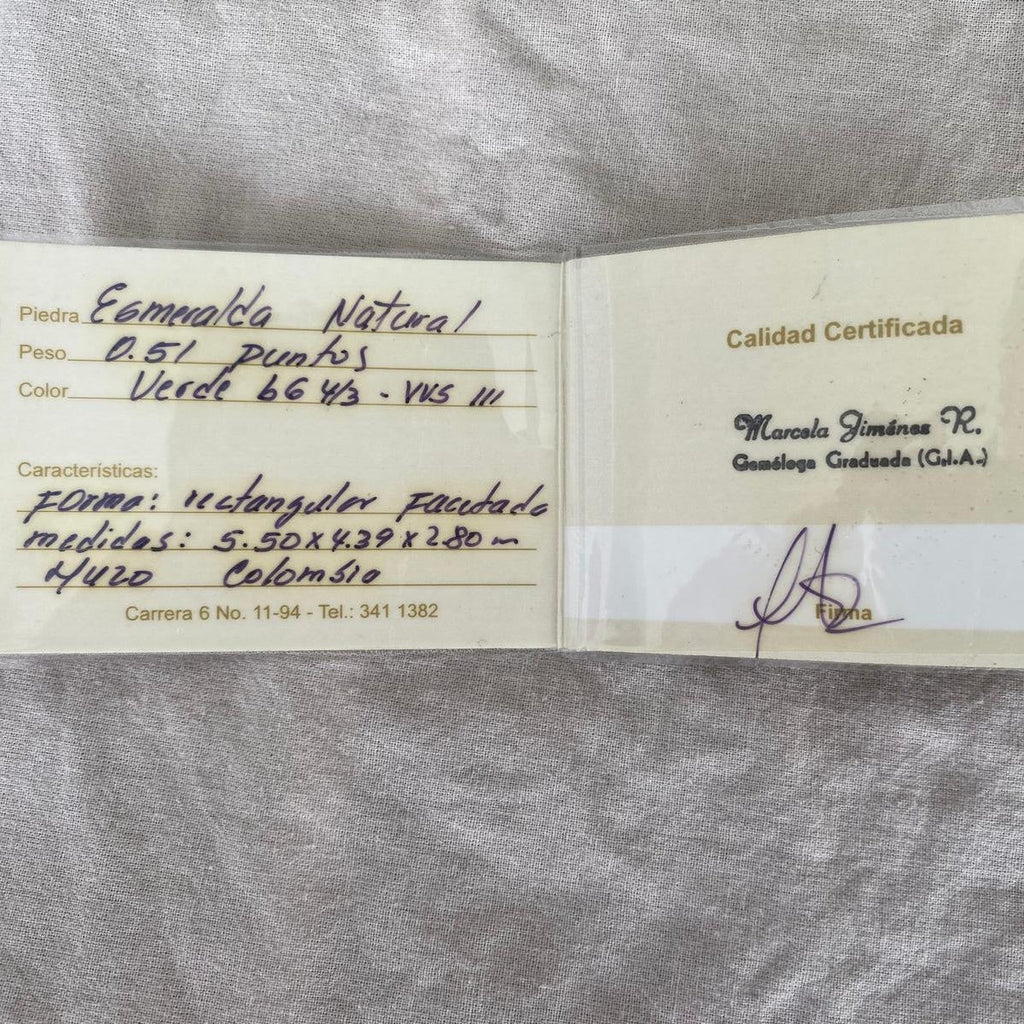 Piedra Esmeralda Natural
Peso 0.51 puntos
Color Verde bG 4/3 - VVS III
Características:
Forma: rectangular Facetado
medidas: 5.50 x 4.39 x 2.80 m
Muzo Colombia
Carrera 6 No. 11-94 - Tel.: 341 1382
Calidad Certificada
Marcela Jiménez R.
Gemóloga Graduada (G.I.A.)
Firma